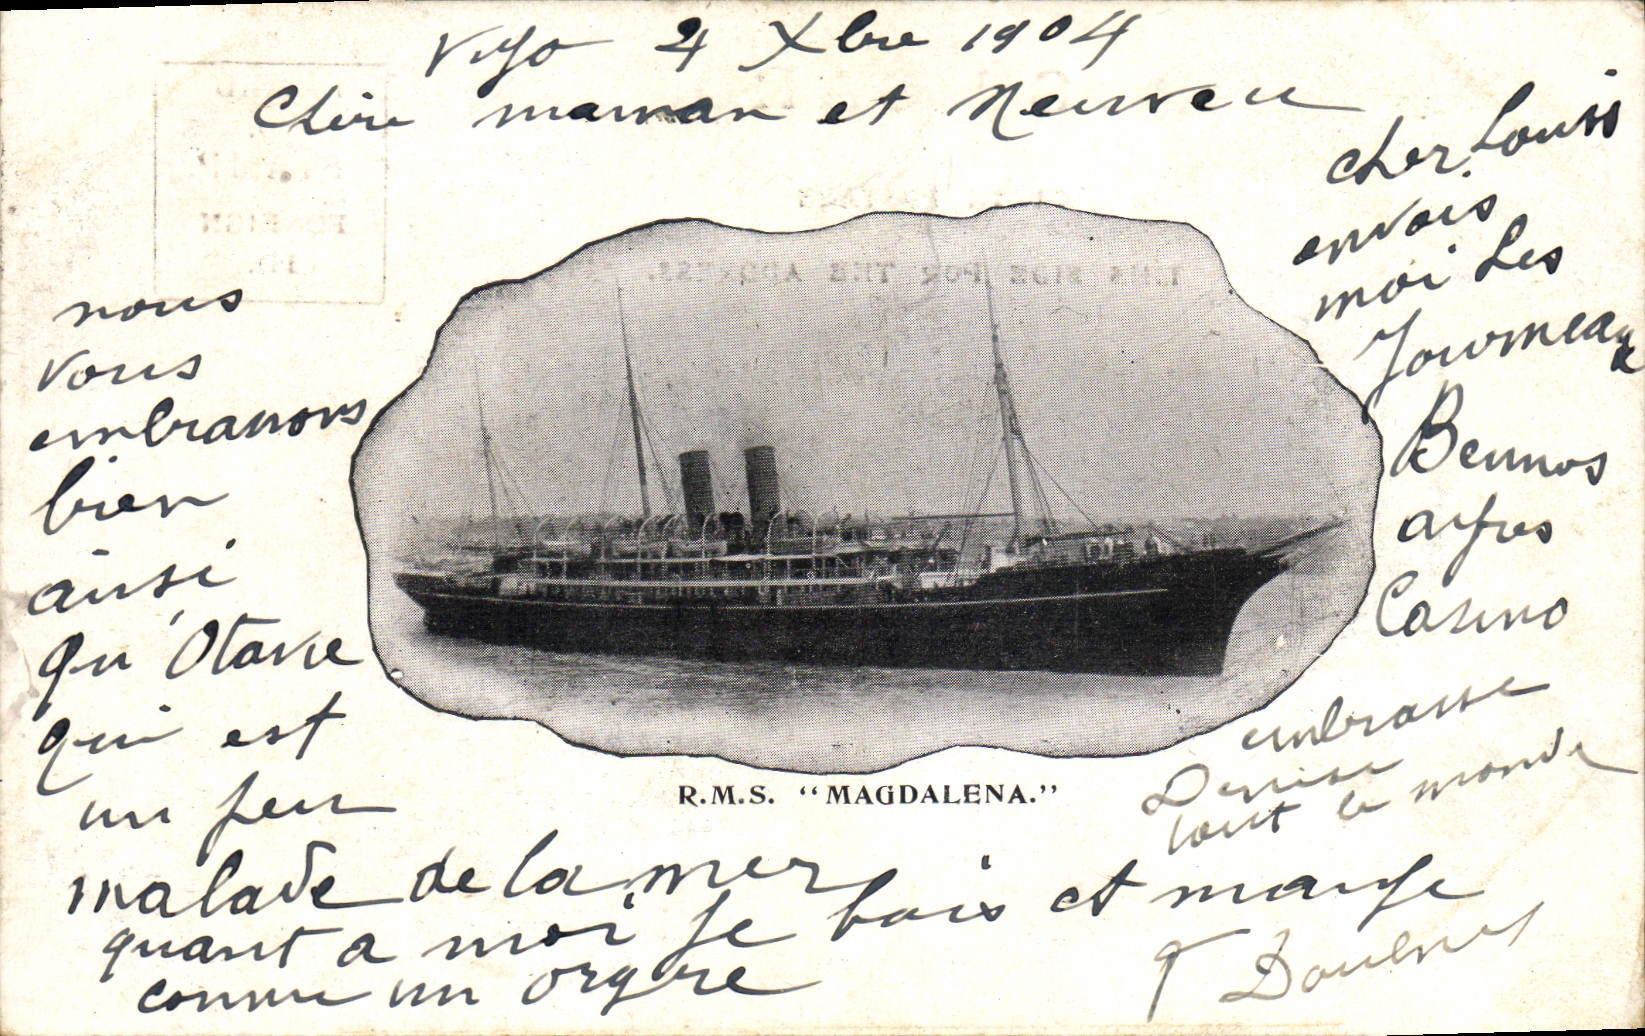 Vigo 4 Xbre 1904
Chère maman et Neuveu
nous
vous
embrassons
bien
ainsi
qu'Otavie
qui est
un peu
malade de la mer
quant a moi je bois et mange
comme un orgre
cher Louis
envois
moi les
Journeaux
Bennos
ayres
Casino
embrasse
Denise
tout le monde
R.M.S. "MAGDALENA."
THIS SIDE FOR THE ADDRESS.
FOREIGN
1D.